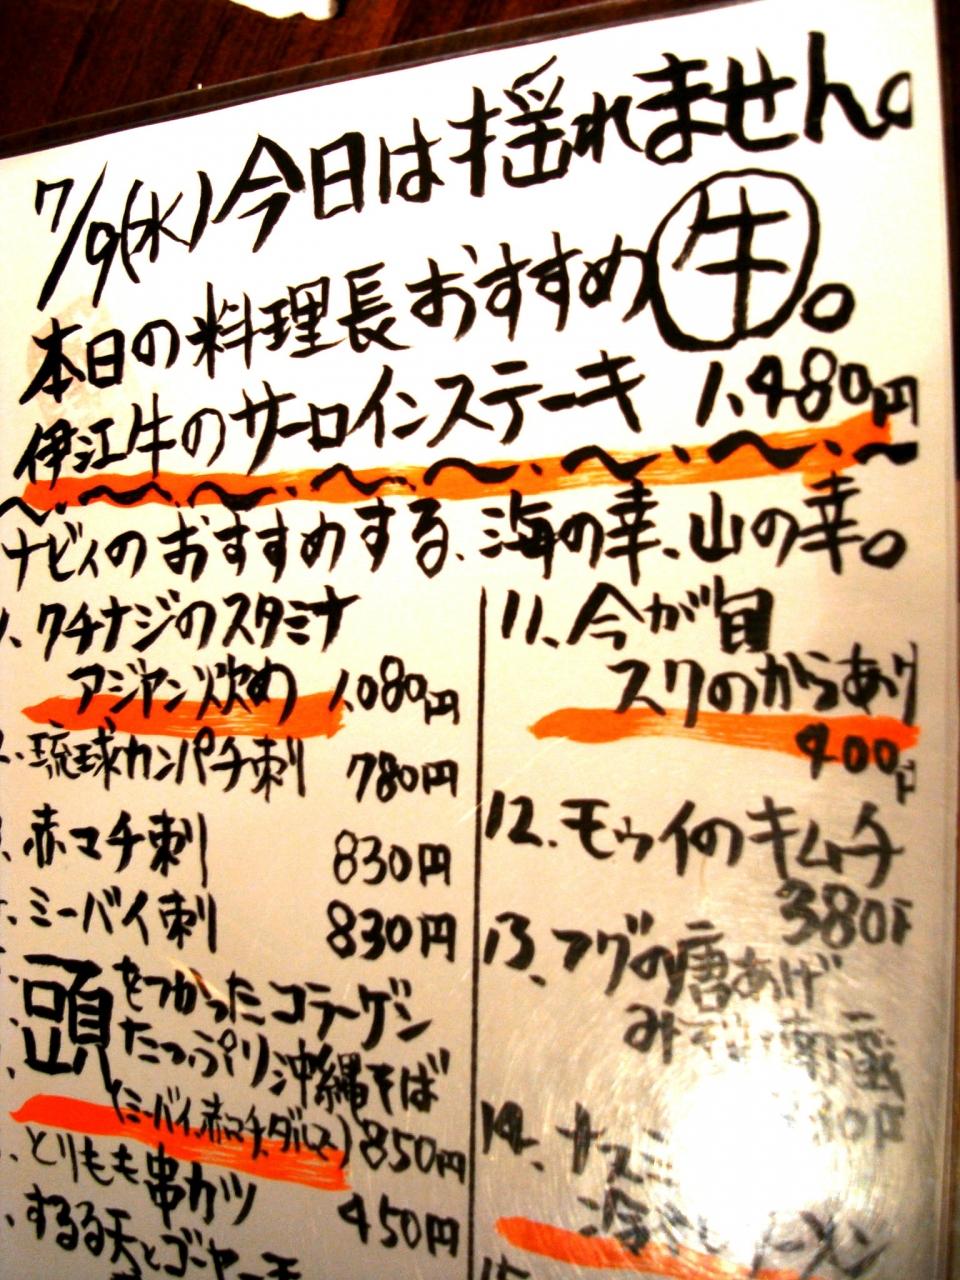 7/9(水)今日は揺れません。
本日の料理長おすすめ牛。
伊江牛のサーロインステーキ 1,480円
ナビィのおすすめする、海の幸、山の幸。
1、クチナジのスタミナ
アジヤン炒め 1,080円
琉球カンパチ刺 780円
赤マチ刺 830円
ミーバイ刺 830円
頭をつかったコラーゲン
たっぷり沖縄そば
(ミーバイ、赤マチ、ダルマー) 850円
とりもも串カツ 450円
するる天とゴーヤー天
11、今が旬
スクのからあげ
400円
12、モウイのキムチ
380円
13、フグの唐あげ
14、ナスミ
冷やしラーメン
15